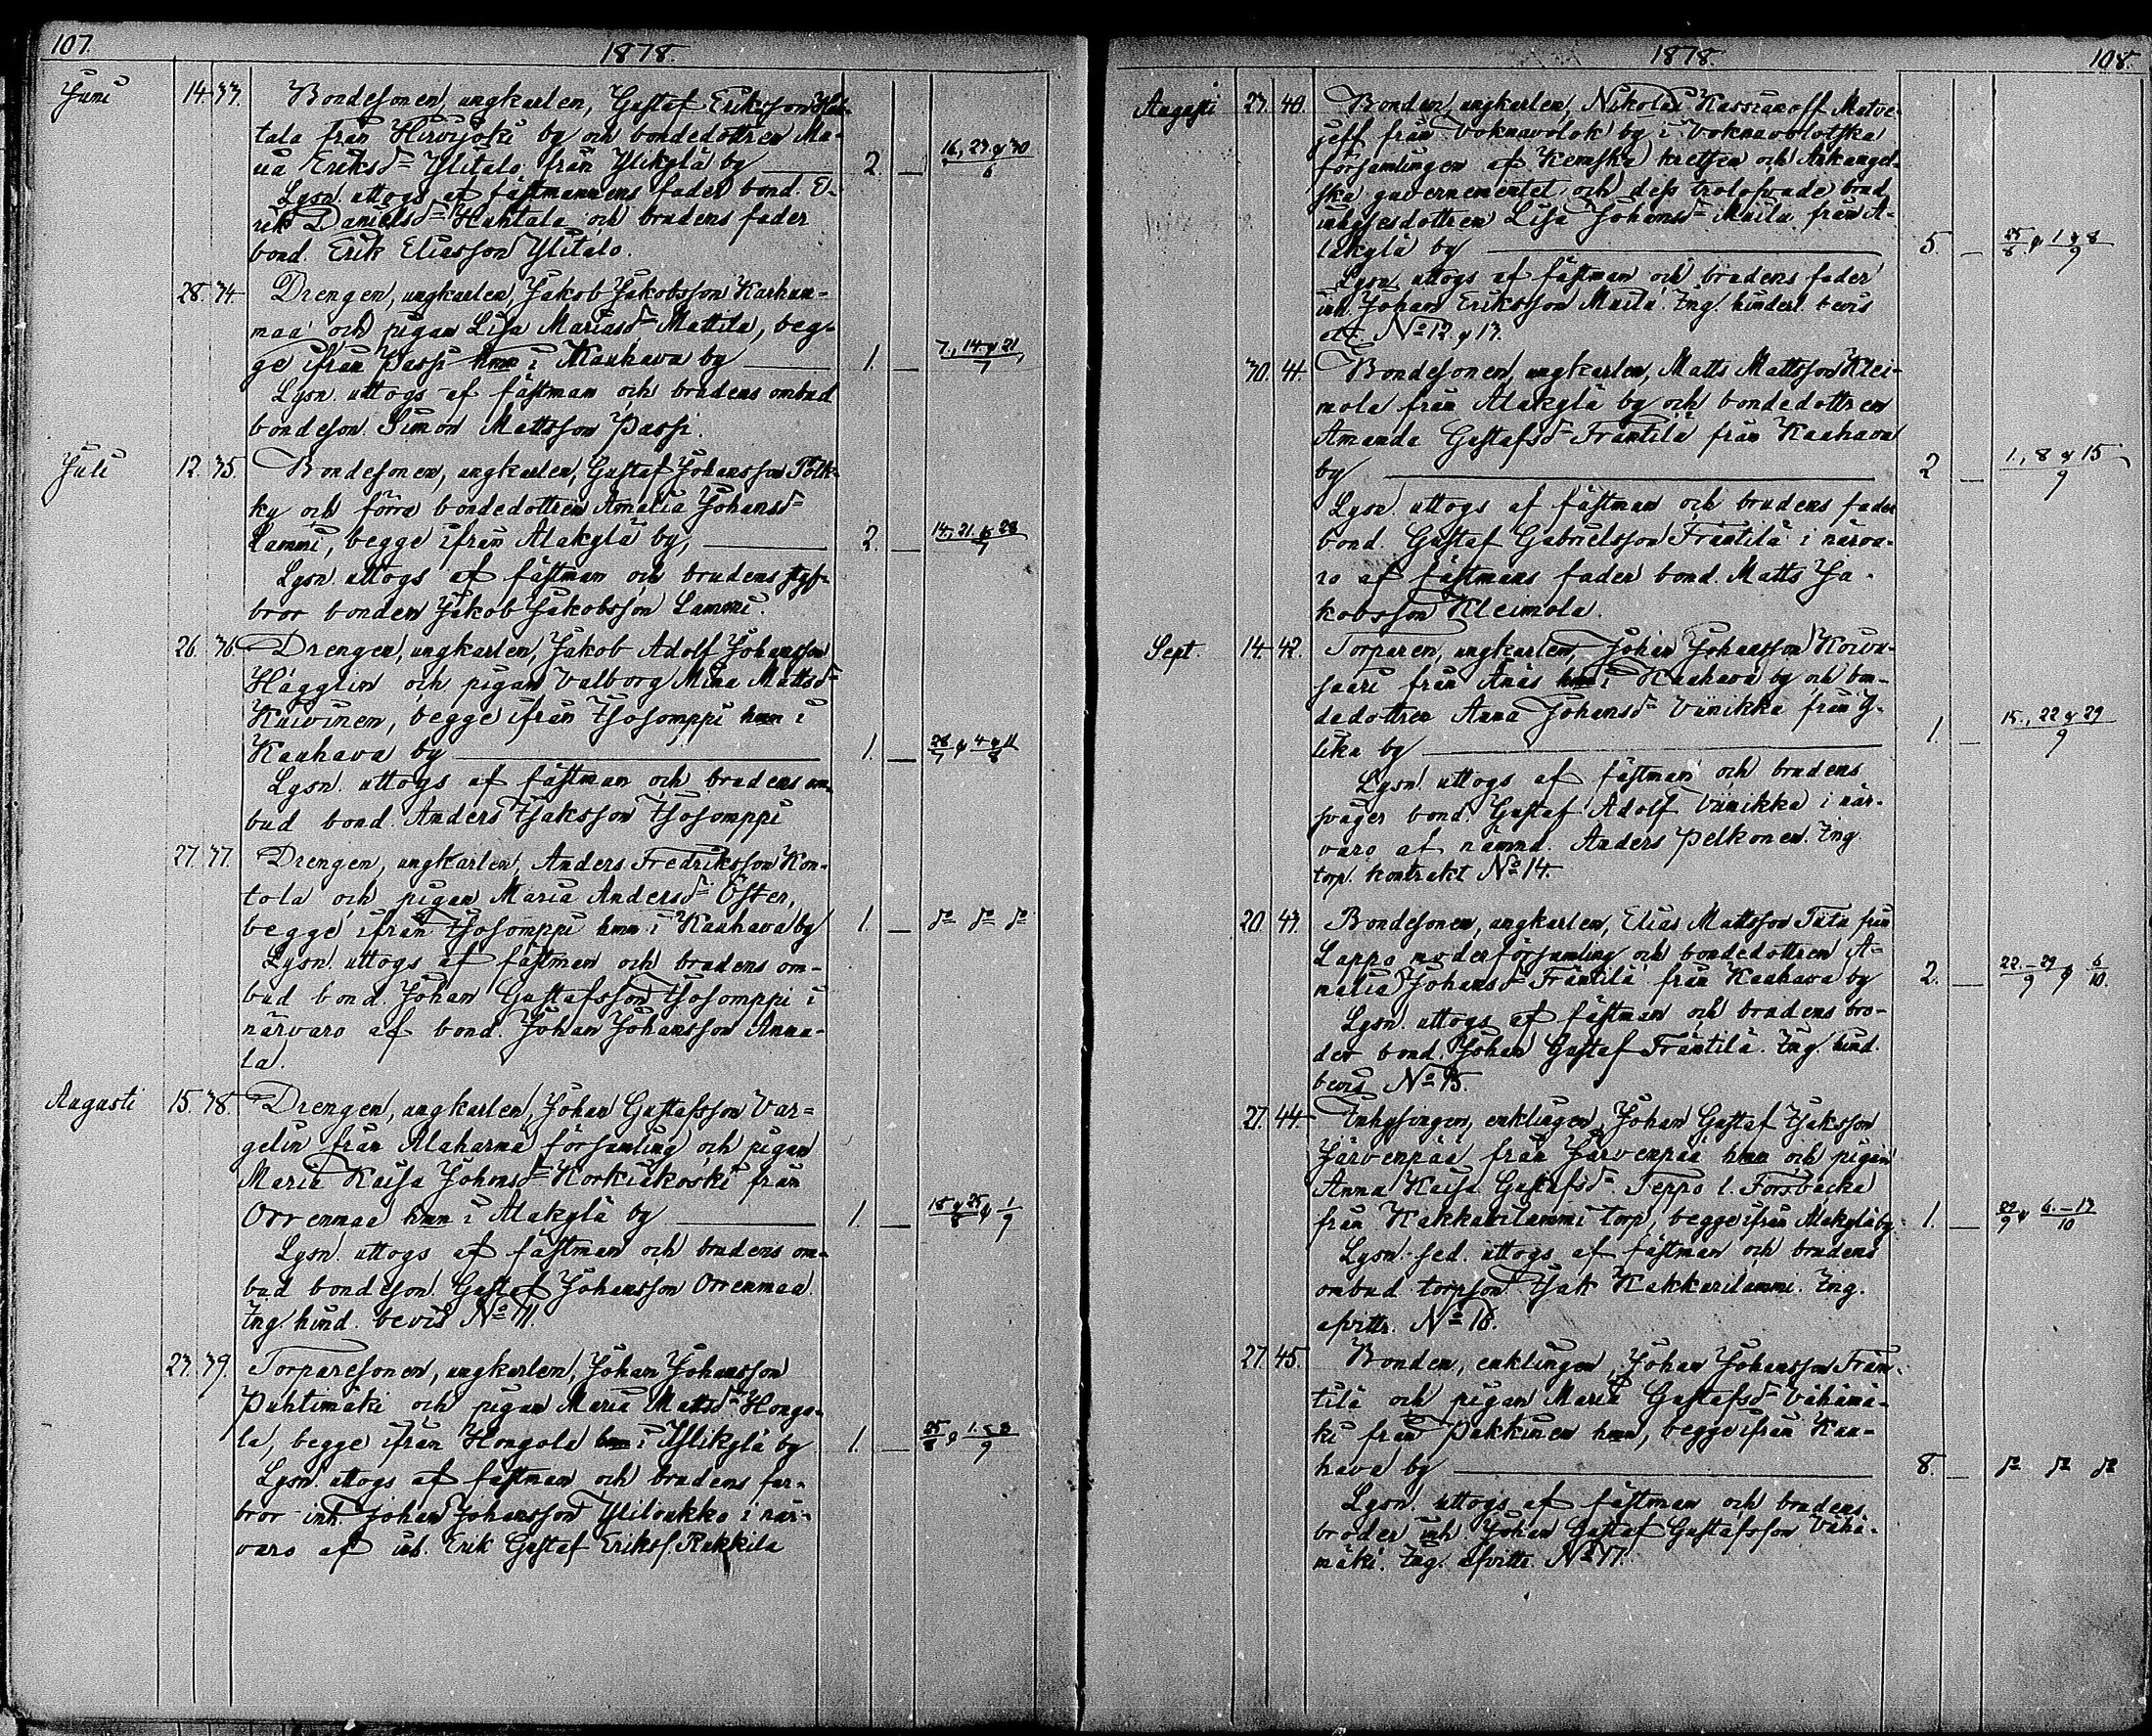 107.
1878.
Juni 14. 33. Bondesonen, ungkarlen, Gustaf Eriksson Huh-
tala från Hirvijoki by och bondedottren Ma-
ria Eriksd= Ylitalo från Ylikylä by — 2. — 16, 23 & 30/6
Lysn. uttogs af fästmannens fader bond. E-
rik Danielsd= Huhtala och brudens fader
bond. Erik Eliasson Ylitalo.
28. 34. Drengen, ungkarlen, Jakob Jakobsson Karhun-
maa och pigan Lisa Mariasd= Mattila, beg-
ge ifrån Passi hmn i Kauhava by — 1. 7., 14. & 21/7
Lysn. uttogs af fästman och brudens ombud
bondeson. Simon Mattsson Passi.
Juli 12. 35. Bondesonen, ungkarlen, Gustaf Johansson Pölk-
ky och förra bondedottren Amalia Johansd=
Lammi, begge ifrån Alakylä by, — 2. — 14., 21. & 28/7
Lysn. uttogs af fästman och brudens styf-
bror bonden Jakob Jakobsson Lammi.
26. 36. Drengen, ungkarlen, Jakob Adolf Johansson
Hägglin och pigan Valborg Mina Mattsd=
Kuivinen, begge ifrån Isosomppi hmn i
Kauhava by — 1. — 28/7 & 4 & 11/8
Lysn. uttogs af fästman och brudens om-
bud bond. Anders Isaksson Isosomppi
27. 37. Drengen, ungkarlen, Anders Fredriksson Kon-
tola och pigan Maria Andersd= Öster,
begge ifrån Isosomppi hmn i Kauhava by 1. — do do do
Lysn. uttogs af fästman och brudens om-
bud bond. Johan Gustafsson Isosomppi i
närvaro af bond. Johan Johansson Anna-
la.
Augusti 15. 38. Drengen, ungkarlen, Johan Gustafsson Var-
gelin från Alaharma församling och pigan
Maria Kaisa Johansd= Korkiakoski från
Orrenmaa hmn i Alakylä by — 1. — 18 & 25/8 & 1/9
Lysn. uttogs af fästman och brudens om-
bud bondeson. Gustaf Johansson Orrenmaa.
Ing. hind. bevis No 11.
23. 39. Torparesonen, ungkarlen, Johan Johansson
Puhtimäki och pigan Maria Mattsd= Honga-
la, begge ifrån Hongola hmn i Ylikylä by 1. — 25/8 & 1. & 8/9
Lysn. uttogs af fästman och brudens far-
bror inh. Johan Johansson Yliloukko i när-
varo af inh. Erik Gustaf Erikss. Rukkila
1878.
108.
Augusti 23. 40. Bonden, ungkarlen, Nikolai Kassianoff Matve-
jeff från Voknavolok by i Voknavolotska
församlingen af Kemska kretsen och Arkangel-
ska guvernementet och dess trolofvade brud
inhysesdottren Lisa Johansd= Maila från A-
lakylä by — 5. — 25/8 & 1 & 8/9
Lysn. uttogs af fästman och brudens fader
inh. Johan Eriksson Maila. Ing. hinderl. bevis
att. No 12. & 13.
30. 41. Bondesonen, ungkarlen, Matts Mattsson Klei-
mola från Alakylä by och bondedottren
Amanda Gustafsd= Frantilä från Kauhava
by — 2 — 1., 8 & 15/9
Lysn. uttogs af fästman och brudens fader
bond. Gustaf Gabrielsson Frantilä i närva-
ro af fästmans fader bond. Matts Ja-
kobsson Kleimola.
Sept. 14. 42. Torparen, ungkarlen, Johan Johansson Koivu-
saari från Ånäs hmn i Kauhava by och bon-
dedottren Anna Johansd= Viinikka från Y-
likä by — 1. — 15., 22 & 29/9
Lysn. uttogs af fästman och brudens
svåger bond. Gustaf Adolf Viinikka i när-
varo af nämnd. Anders Pelkonen. Ing.
torp. kontrakt No 14.
20. 43. Bondesonen, ungkarlen, Elias Mattsson Tiila från
Lappo moderförsamling och bondedottren A-
malia Johansd= Frantilä från Kauhava by 2. — 22. – 29/9 & 6/10.
Lysn. uttogs af fästman och brudens bro-
der bond. Johan Gustaf Frantilä. Ing. hind.
bevis No 15.
27. 44. Inhysingen, enklingen, Johan Gustaf Isaksson
Järvenpää från Järvenpää hmn och pigan
Anna Kaisa Gustafsd= Seppo l. Forsbacka
från Kakkurilammi torp, begge ifrån Alakylä by 1. — 29/9 & 6. – 13/10
Lysn. sed. uttogs af fästman och brudens
ombud torpson Isak Kakkurilammi. Ing.
afvittr. No 16.
27. 45. Bonden, enklingen, Johan Johansson Fran-
tilä och pigan Maria Gustafsd= Vähämä-
ki från Pakkinen hmn, begge ifrån Kau-
hava by — 8. — do do do
Lysn. uttogs af fästman och brudens
broder inh. Johan Gustaf Gustafsson Vähä-
mäki. Ing. afvittr. No 17.